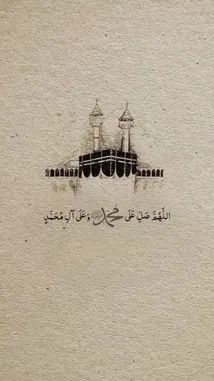 اللَّهُمَّ صَلِّ عَلَى مُحَمَّد وَعَلَى آلِ مُحَمَّدٍ